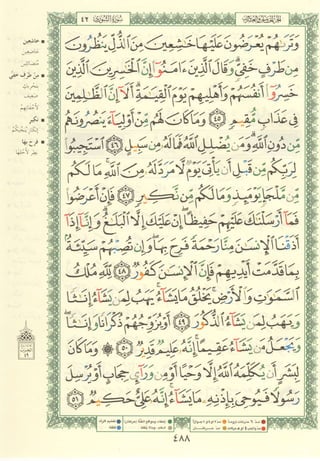 سُورَةُ الشُّورَىٰ ٤٢
وَتَرَىٰهُمْ يُعْرَضُونَ عَلَيْهَا خَٰشِعِينَ مِنَ ٱلذُّلِّ يَنظُرُونَ
مِن طَرْفٍ خَفِىٍّ وَقَالَ ٱلَّذِينَ ءَامَنُوٓا۟ إِنَّ ٱلْخَٰسِرِينَ ٱلَّذِينَ
خَسِرُوٓا۟ أَنفُسَهُمْ وَأَهْلِيهِمْ يَوْمَ ٱلْقِيَٰمَةِ أَلَآ إِنَّ ٱلظَّٰلِمِينَ
فِى عَذَابٍ مُّقِيمٍ ٤٥ وَمَا كَانَ لَهُم مِّنْ أَوْلِيَآءَ يَنصُرُونَهُم
مِّن دُونِ ٱللَّهِ وَمَن يُضْلِلِ ٱللَّهُ فَمَا لَهُۥ مِن سَبِيلٍ ٤٦ ٱسْتَجِيبُوا۟
لِرَبِّكُم مِّن قَبْلِ أَن يَأْتِىَ يَوْمٌ لَّا مَرَدَّ لَهُۥ مِنَ ٱللَّهِ مَا لَكُم
مِّن مَّلْجَإٍ يَوْمَئِذٍ وَمَا لَكُم مِّن نَّكِيرٍ ٤٧ فَإِنْ أَعْرَضُوا۟
فَمَآ أَرْسَلْنَٰكَ عَلَيْهِمْ حَفِيظًا إِنْ عَلَيْكَ إِلَّا ٱلْبَلَٰغُ وَإِنَّآ إِذَآ
أَذَقْنَا ٱلْإِنسَٰنَ مِنَّا رَحْمَةً فَرِحَ بِهَا وَإِن تُصِبْهُمْ سَيِّئَةٌۢ
بِمَا قَدَّمَتْ أَيْدِيهِمْ فَإِنَّ ٱلْإِنسَٰنَ كَفُورٌ ٤٨ لِّلَّهِ مُلْكُ
ٱلسَّمَٰوَٰتِ وَٱلْأَرْضِ يَخْلُقُ مَا يَشَآءُ يَهَبُ لِمَن يَشَآءُ إِنَٰثًا
وَيَهَبُ لِمَن يَشَآءُ ٱلذُّكُورَ ٤٩ أَوْ يُزَوِّجُهُمْ ذُكْرَانًا وَإِنَٰثًا
وَيَجْعَلُ مَن يَشَآءُ عَقِيمًا إِنَّهُۥ عَلِيمٌ قَدِيرٌ ٥٠ ۞ وَمَا كَانَ
لِبَشَرٍ أَن يُكَلِّمَهُ ٱللَّهُ إِلَّا وَحْيًا أَوْ مِن وَرَآئِ حِجَابٍ أَوْ يُرْسِلَ
رَسُولًا فَيُوحِىَ بِإِذْنِهِۦ مَا يَشَآءُ إِنَّهُۥ عَلِىٌّ حَكِيمٌ ٥١
٤٨٨